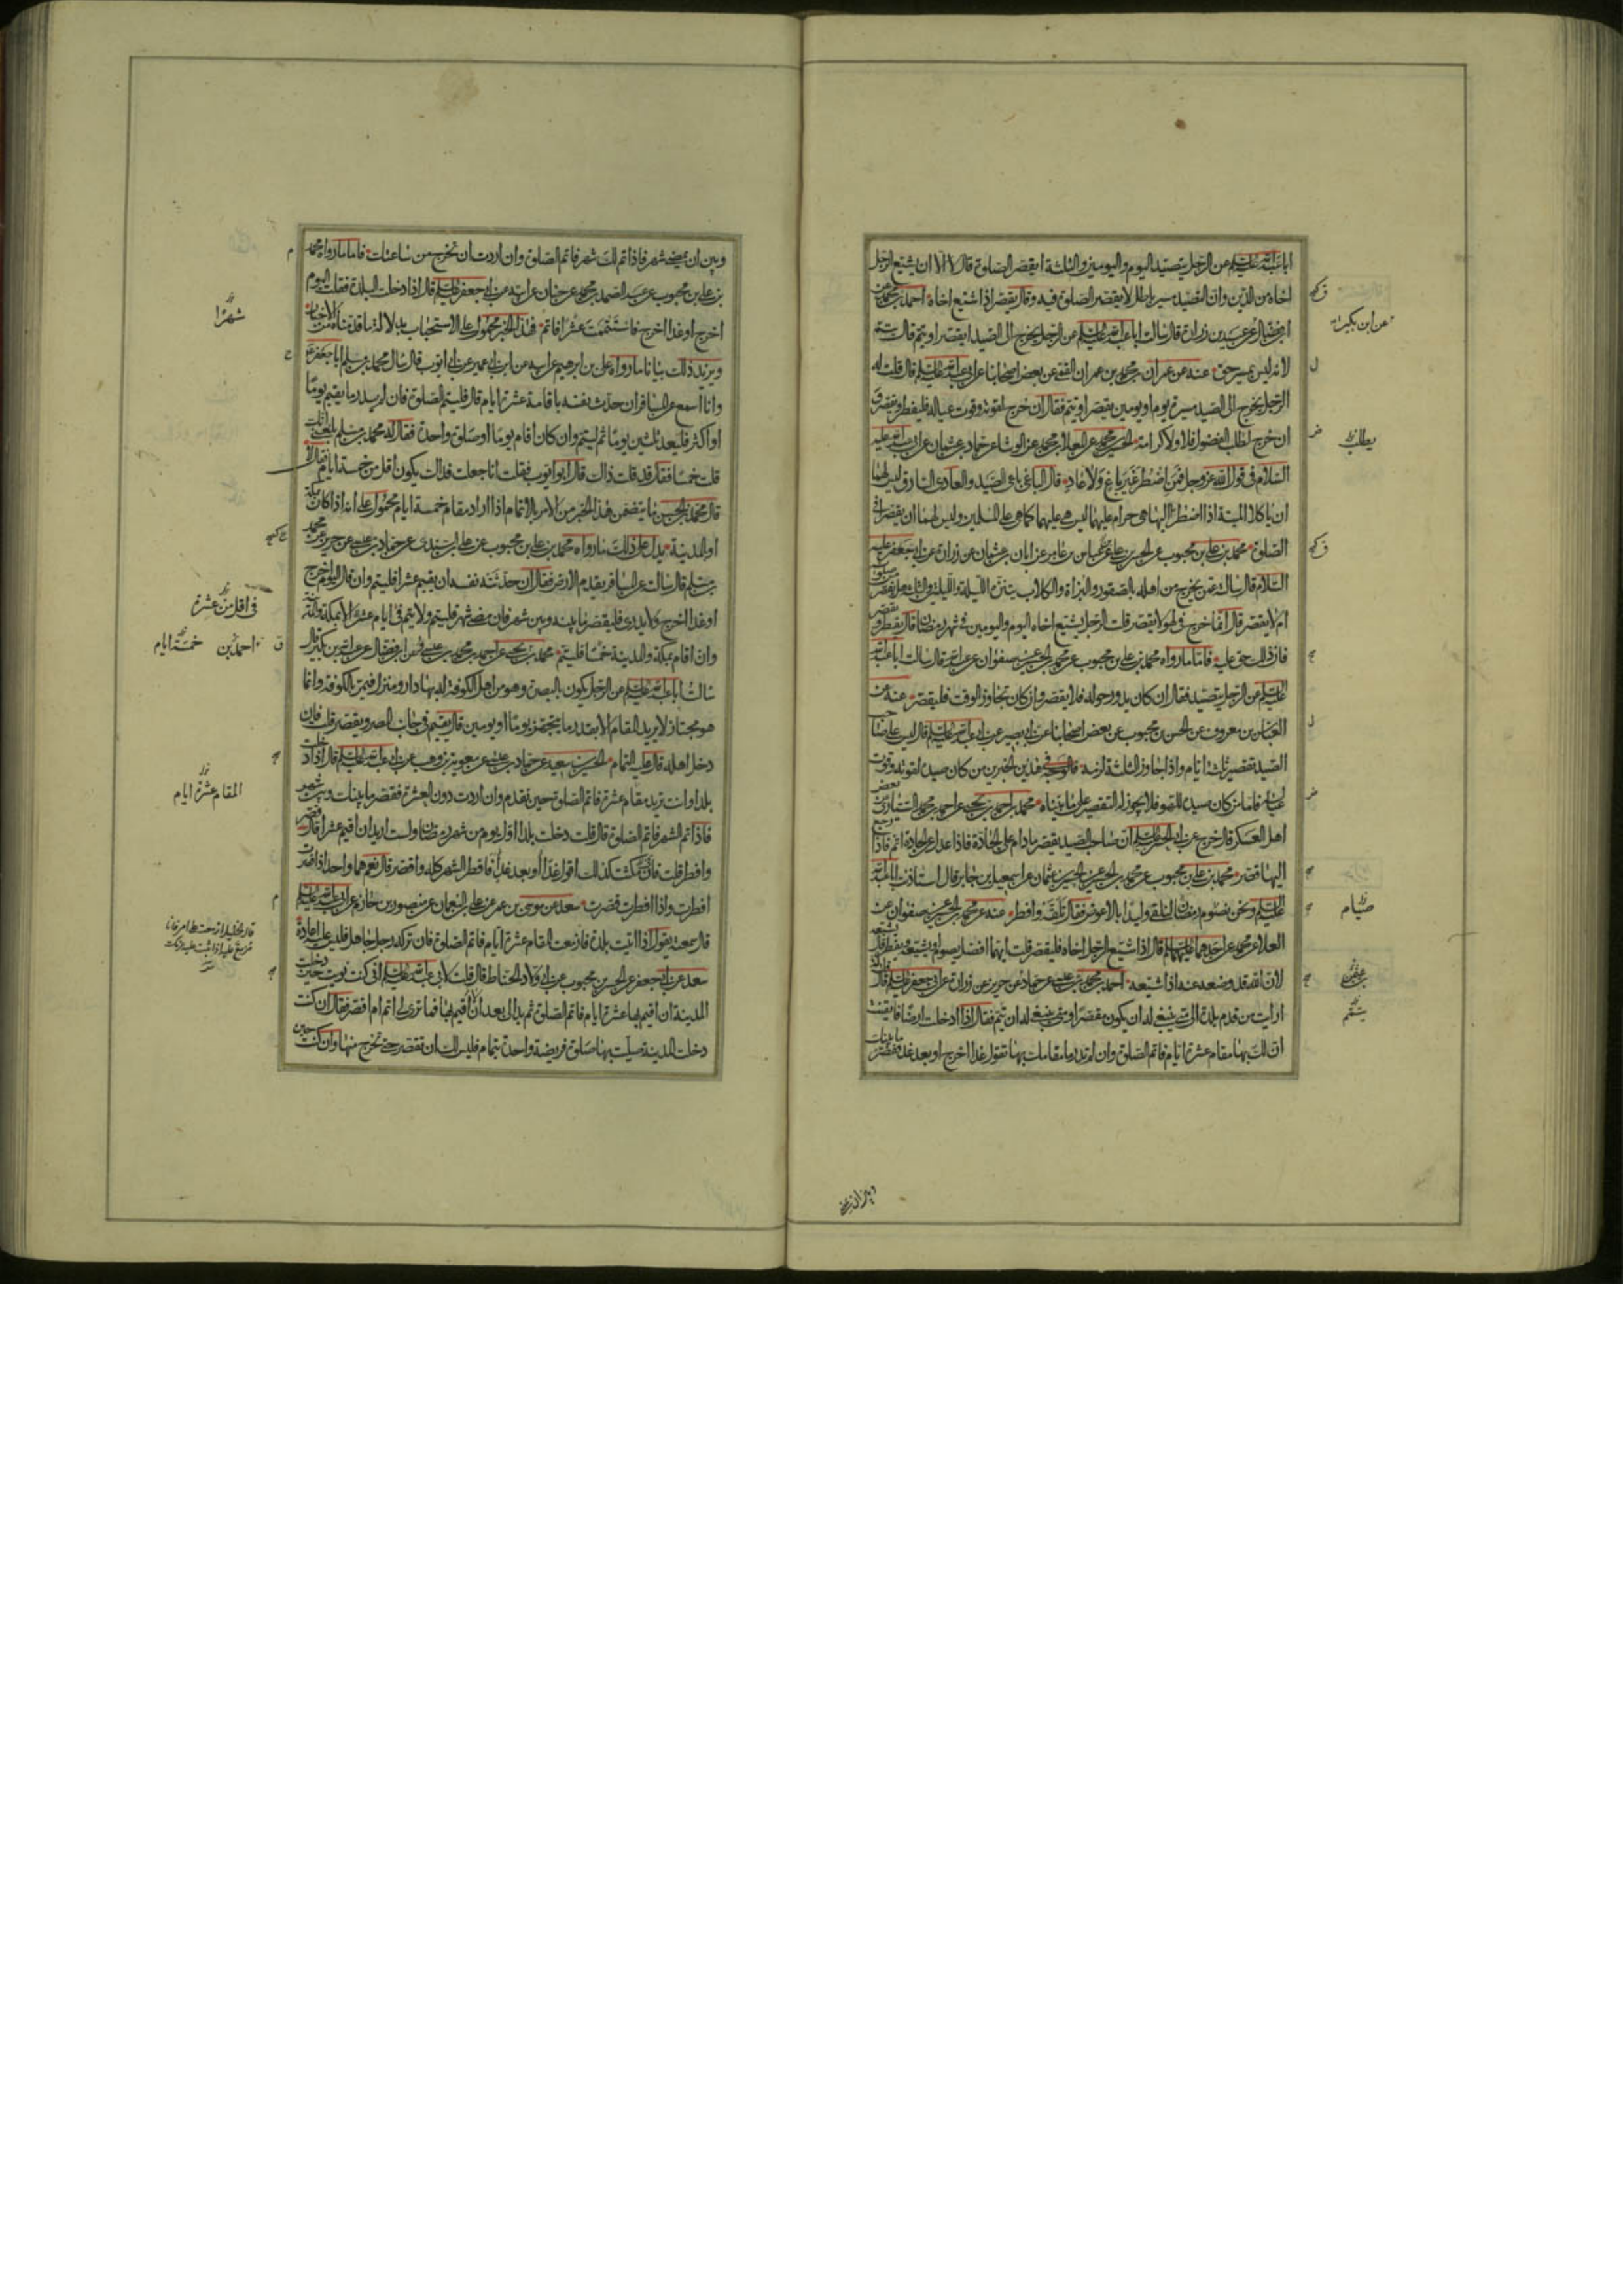 ابا عبد الله عليه السلم عن الرجل يتصيد اليوم واليومين والثلثة ايقصر الصلوة قال لا الا ان يشيع الرجل
اخاه من الدين وان التصيد مسير باطل لا يقصر الصلوة فيه وقال يقصر اذا شيع اخاه احمد بن محمد عن
ابن فضال عن عبيد بن زرارة قال سالت ابا عبد الله عليه السلم عن الرجل يخرج الى الصيد ايقصر او يتم قال يتم
لانه ليس بمسير حق عنه عن عمران بن محمد بن عمران القمي عن بعض اصحابنا عن ابي عبد الله عليه السلم قال قلت له
الرجل يخرج الى الصيد مسيرة يوم او يومين يقصر او يتم فقال ان خرج لقوته وقوت عياله فليفطر ويقصر
ان خرج لطلب الفضول فلا ولا كرامة الحسين بن محمد عن المعلى بن محمد عن الوشاء عن حماد بن عثمان عن ابي عبد الله عليه
السلام في قول الله عز وجل فمن اضطر غير باغ ولا عاد قال الباغي باغي الصيد والعادي السارق ليس لهما
ان ياكلا الميتة اذا اضطرا اليها هي حرام عليهما ليس هي عليهما كما هي على المسلمين وليس لهما ان يقصرا في
الصلوة محمد بن علي بن محبوب عن الحسن بن علي عن عباس بن عامر عن ابان بن عثمان عن زرارة عن ابي جعفر عليه
السلام قال سالته عمن يخرج من اهله بالصقور والبزاة والكلاب يتنزه الليلة والليلتين والثلث هل يقصر من صلوته
ام لا يقصر قال انما خرج في لهو لا يقصر قلت الرجل يشيع اخاه اليوم واليومين في شهر رمضان قال يفطر ويقصر
فان ذلك حق عليه فاما ما رواه محمد بن علي بن محبوب عن محمد بن الحسين عن صفوان عن عبد الله قال سالت ابا عبد الله
عليه السلم عن الرجل يتصيد فقال ان كان يدور حوله فلا يقصر وان كان تجاوز الوقت فليقصر عنه عن
العباس بن معروف عن الحسن بن محبوب عن بعض اصحابنا عن ابي بصير عن ابي عبد الله عليه السلم قال ليس على صاحب
الصيد تقصير ثلثة ايام واذا جاوز الثلثة لزمه فالوجه في هذين الخبرين من كان صيده لقوته وقوت
عياله فاما من كان صيده للهو فلا يجوز له التقصير على ما بيناه محمد بن احمد بن يحيى عن احمد بن محمد السياري عن بعض
اهل العسكر قال خرج عن ابي الحسن عليه السلم ان صاحب الصيد يقصر ما دام على الجادة فاذا عدل عن الجادة اتم فاذا رجع
اليها قصر محمد بن علي بن محبوب عن محمد بن الحسين عن الحسن بن عثمان عن اسمعيل بن جابر قال استاذنت ابا عبد الله
عليه السلم ونحن نصوم رمضان لنلقى وليدا بالاعوص فقال تلقه وافطر عنه عن محمد بن الحسين عن صفوان عن
العلا عن محمد عن احدهما عليهما السلم قال اذا شيع الرجل اخاه فليقصر قلت ايهما افضل يصوم او يشيعه ويفطر قال يشيعه
لان الله قد وضعه عنه اذا شيعه احمد بن محمد بن عيسى عن حماد عن حريز عن زرارة عن ابي جعفر عليه السلم قال قلت له
ارايت من قدم بلدة الى متى ينبغي له ان يكون مقصرا ومتى ينبغي له ان يتم فقال اذا دخلت ارضا فايقنت
ان لك بها مقام عشرة ايام فاتم الصلوة وان لم تدر ما مقامك بها تقول غدا اخرج او بعد غد فقصر ما بينك
وبين ان
عن ابن بكير
يطلب
صيام
وبين ان يمضي شهر فاذا تم لك شهر فاتم الصلوة وان اردت ان تخرج من ساعتك فاما ما رواه محمد
بن علي بن محبوب عن عبد الصمد بن محمد عن حنان عن ابيه عن ابي جعفر عليه السلم قال اذا دخلت البلدة فقلت اليوم
اخرج او غدا اخرج فاستتممت عشرا فاتم فهذا الخبر محمول على الاستحباب بدلالة ما قدمناه من الاخبار
ويزيد ذلك بيانا ما رواه علي بن ابرهيم عن ابيه عن ابن ابي عمير عن ابي ايوب قال سال محمد بن مسلم ابا جعفر
وانا اسمع عن المسافر ان حدث نفسه باقامة عشرة ايام قال فليتم الصلوة فان لم يدر ما يقيم يوما
او اكثر فليعد ثلثين يوما ثم ليتم وان كان اقام يوما او صلوة واحدة فقال له محمد بن مسلم بلغني انك
قلت خمسا فقال قد قلت ذاك قال ابو ايوب فقلت انا جعلت فداك يكون اقل من خمسة ايام فقال لا
قال محمد بن الحسن ما يتضمن هذا الخبر من الامر بالاتمام اذا اراد مقام خمسة ايام محمول على انه اذا كان بمكة
او المدينة يدل على ذلك ما رواه محمد بن علي بن محبوب عن علي بن السندي عن حماد بن عيسى عن حريز عن محمد
بن مسلم قال سالته عن المسافر يقدم الارض فقال ان حدثته نفسه ان يقيم عشرا فليتم وان قال اليوم اخرج
او غدا اخرج ولا يدري فليقصر ما بينه وبين شهر فان مضى شهر فليتم ولا يتم في ايام عشرة الا بمكة والمدينة
وان اقام بمكة والمدينة خمسا فليتم محمد بن يحيى عن احمد بن محمد بن عيسى عن ابن فضال عن عبد الله بن بكير قال
سالت ابا عبد الله عليه السلم عن الرجل يكون بالبصرة وهو من اهل الكوفة له بها دار ومنزل فيمر بالكوفة وانما
هو مجتاز لا يريد المقام الا بقدر ما يتجهز يوما او يومين قال يقيم في جانب المصر ويقصر قلت فان
دخل اهله قال عليه التمام الحسين بن سعيد عن حماد بن عيسى عن معوية بن وهب عن ابي عبد الله عليه السلم قال اذا دخلت
بلدا وانت تريد مقام عشرة فاتم الصلوة حين تقدم وان اردت دون العشرة فقصر ما بينك وبين شهر
فاذا تم الشهر فاتم الصلوة قال قلت دخلت بلدا اول يوم من شهر رمضان ولست اريد ان اقيم عشرا قال قصر
وافطر قلت فان مكثت كذلك اقول غدا او بعد غد فافطر الشهر كله واقصر قال نعم هما واحد اذا قصرت
افطرت واذا افطرت قصرت سعد عن موسى بن عمر عن علي بن النعمان عن منصور بن حازم عن ابي عبد الله عليه السلم
قال سمعته يقول اذا اتيت بلدة فازمعت المقام عشرة ايام فاتم الصلوة فان تركه رجل جاهل فليس عليه اعادة
سعد عن ابي جعفر عن الحسن بن محبوب عن ابي ولاد الحناط قال قلت لابي عبد الله عليه السلم اني كنت نويت حين دخلت
المدينة ان اقيم بها عشرة ايام فاتم الصلوة ثم بدا لي بعد ان لا اقيم بها فما ترى لي اتم ام اقصر فقال ان كنت
دخلت المدينة صليت بها صلوة فريضة واحدة بتمام فليس لك ان تقصر حتى تخرج منها وان كنت حين
شهرا
في اقل من عشرة
احمد بن
خمسة ايام
المقام عشرة ايام